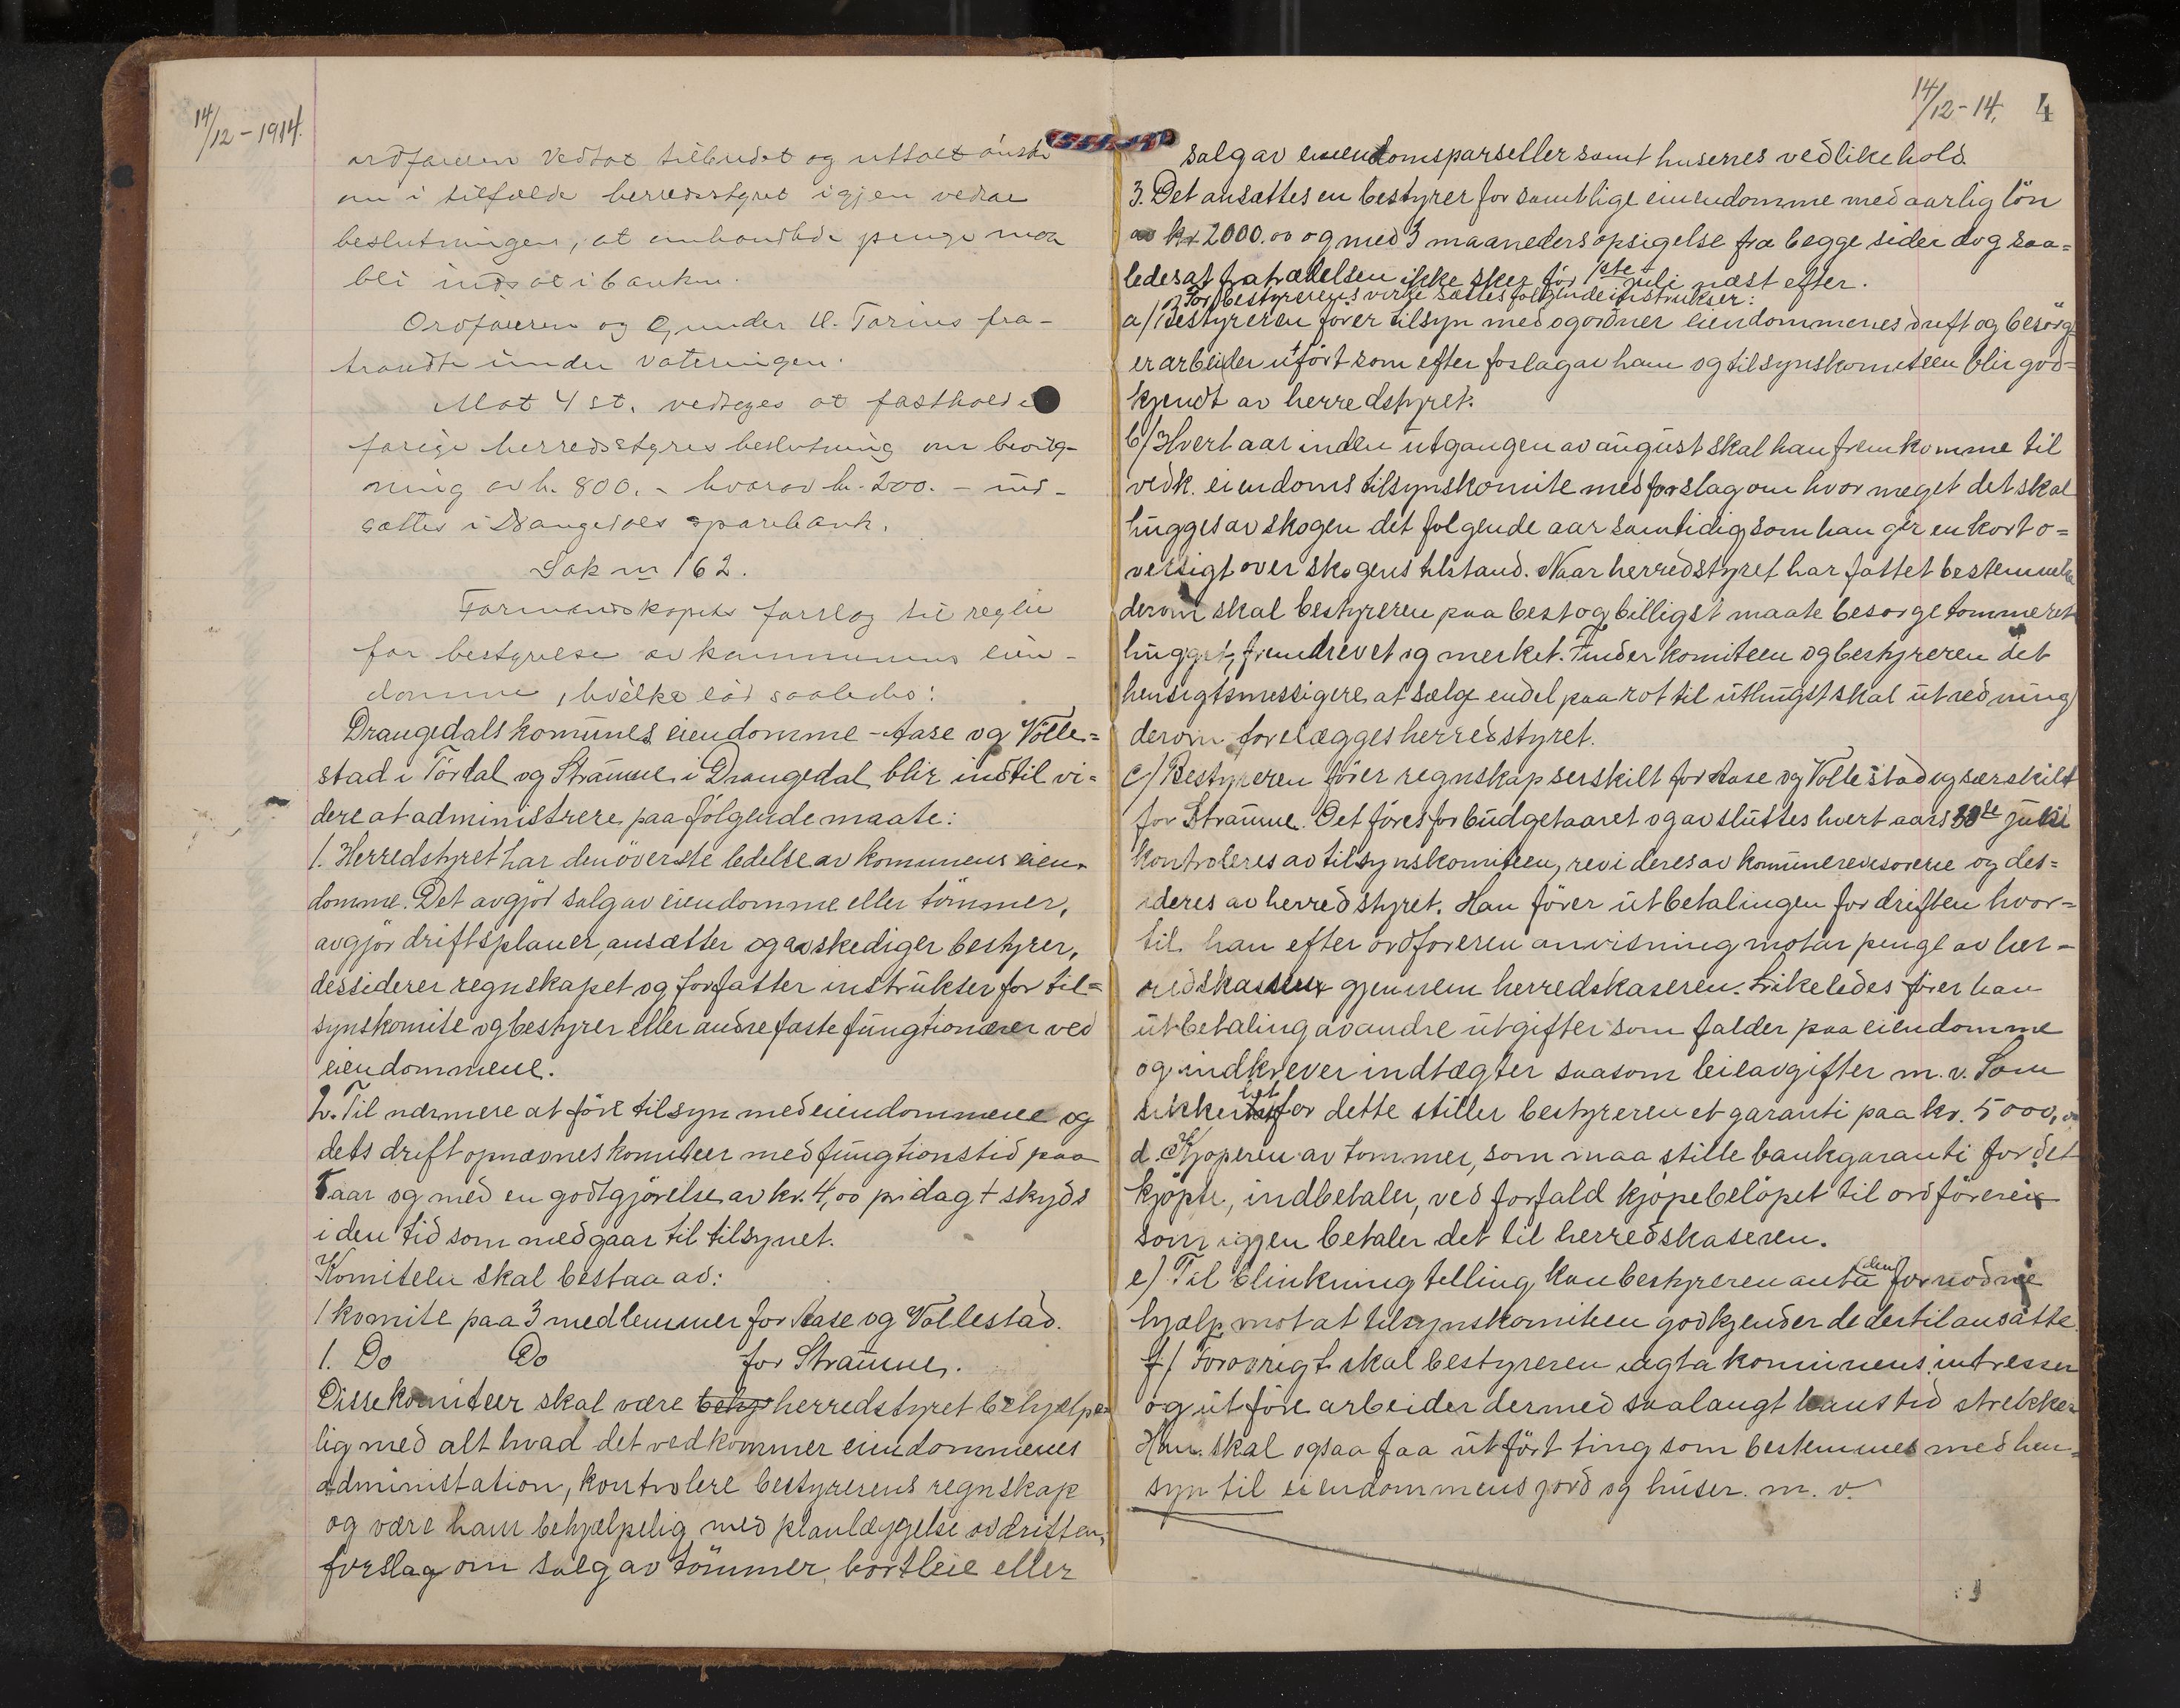 14/12-1914.
ordføreren vedtat tilbudet og uttalt ønske
om i tilfælde herredsstyret igjen vedtar
beslutningen, at omhandlede penge maa
bli indsat i banken.
Ordføreren og Gunder U. Torius fra-
traadte under voteringen.
Mot 4 st. vedtoges at fastholde
forige herredsstyres beslutning om bevilg-
ning av kr. 800.- hvorav kr. 200.- ind-
sættes i Drangedals sparebank.
Sak nr 162.
Formandskapets forslag til regler
for bestyrelse av kommunens eien-
domme, hvilke lød saaledes:
Drangedals komunes eiendomme - Aase og Völle=
stad i Tördal og Straume i Drangedal blir indtil vi=
dere at administrere paa fölgende maate:
1. Herredstyret har den överste ledelse av komunens eien-
domme. Det avgjör salg av eiendomme eller tömmer,
avgjör driftsplaner, ansætter og avskediger bestyrer,
dessiderer regnskapet og forfatter instrukser for til=
synskomite og bestyrer eller andre faste fungtionærer ved
eiendommene.
2. Til nærmere at före tilsyn med eiendommene og
dets drift opnævnes komiteer med fungtionstid paa
5 aar og med en godtgjörelse av kr. 4,00 pr dag + skyds
i den tid som medgaar til tilsynet.
Komiteen skal bestaa av:
1 komite paa 3 medlemmer for Aase og Vollestad.
1. Do Do for Straume.
Disse komiteer skal være behj herredstyret behjælpe
lig med alt hvad det vedkommer eiendommenes
administation, kontrolere bestyrerens regnskap
og være ham behjælpelig med planlæggelse av driften,
forslag om salg av tömmer, bortleie eller
14/12-14. 4
salg av eiendomsparseller samt husenes vedlikehold.
3. Det ansættes en bestyrer for samtlige eiendomme med aarlig lön
av kr 2000.00 og med 3 maaneders opsigelse fra begge sider dog saa=
ledes at fratrædelsen ikke sker för 1ste juli næst efter.
For bestyrerens virke sættes folgende instrukser:
a/ Bestyreren förer tilsyn med og ordner eiendommenes drift og besörg
er arbeider utfört som efter foslag av ham og tilsynskomiteen blir god=
kjendt av herredstyret.
b/ Hvert aar inden utgangen av august skal han fremkomme til
vedk. eiendoms tilsynskomite med forslag om hvor meget det skal
hugges av skogen det folgende aar samtidig som han gir en kort o=
versigt over skogens tilstand. Naar herredstyret har fattet bestemmelse
derom skal bestyreren paa best og billigst maate besorge tommeret
hugget, fremdrevet og merket. Finder komiteen og bestyreren det
hensigtsmessigere at sælge endel paa rot til uthugst skal utredning
derom forelægges herredstyret.
c/ Bestyreren förer regnskap serskilt for Aase og Vollestad og særskilt
for Straume. Det föres for budgetaaret og avsluttes hvert aars 30te juni
kontroleres av tilsynskomiteen, revideres av komunerevisorerne og des=
ideres av herredstyret. Han förer utbetalingen for driften hvor=
til han efter ordforeren anvisning motar penge av her=
redskassen gjennem herredskaseren. Likeledes förer han
utbetaling av andre utgifter som falder paa eiendomme
og indkrever indtægter saasom leieavgifter m. v. Som
sikkerhet for dette stiller bestyreren et garanti paa kr. 5000,00
d. Kjoperen av tommer, som maa stille bankgaranti for det
kjöpte, indbetaler, ved forfald kjöpebelöpet til ordföreren
som igjen betaler det til herredskaseren.
e) Til blinkning telling kan bestyreren anta den fornodne
hjælp mot at tilsynskomiteen godkjender de dertil ansatte.
f/ Forovrigt skal bestyreren vagta komunens intresser
og utföre arbeider dermed saalangt hans tid strekker
Han skal ogsaa faa utfört ting som bestemmes med hen=
syn til eiendommens jord og huser. m. v.